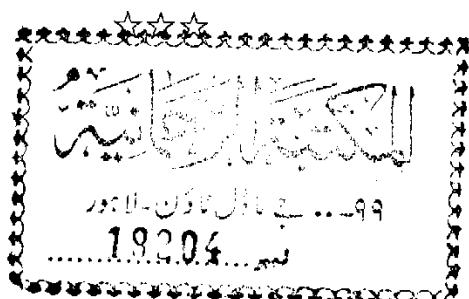 المکتبة الرحمانیة
۹۹... جے ماڈل ٹاؤن - لاہور
نمبر ....18204......